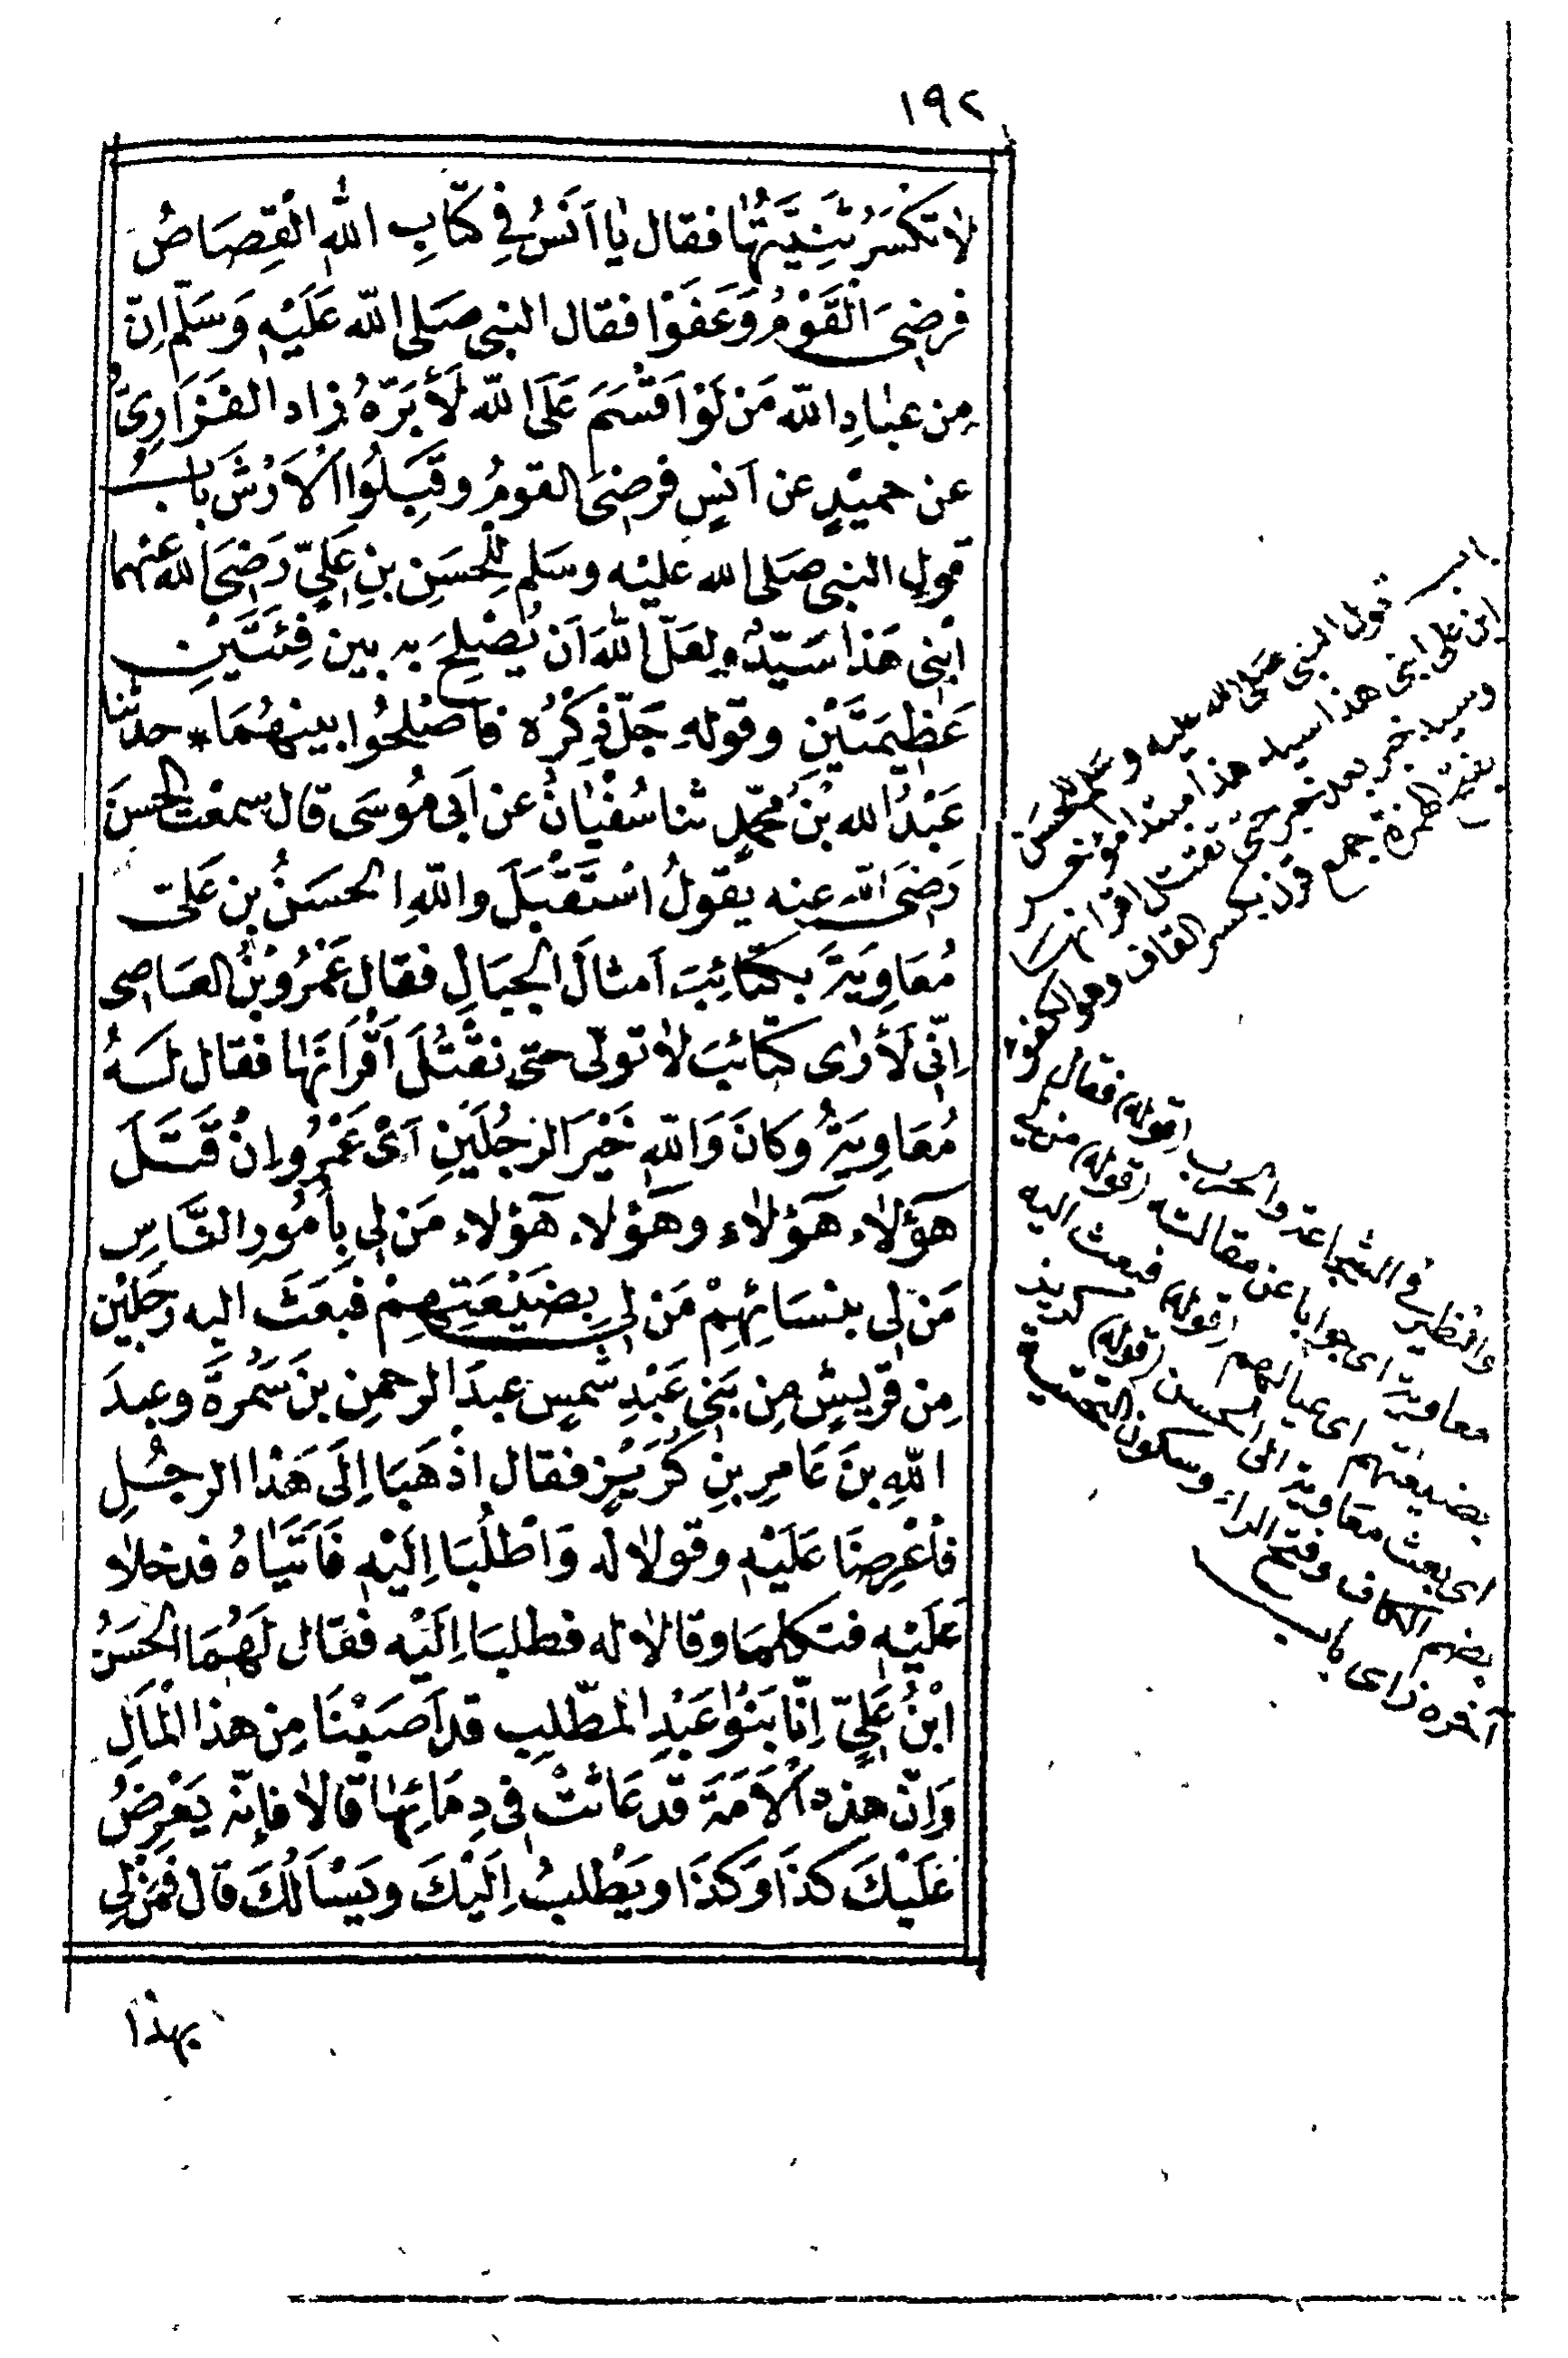 ١٩٢
لا تكسر ثنيتها فقال يا انس في كتاب الله القصاص
فرضى القوم وعفوا فقال النبى صلى الله عليه وسلم ان
من عباد الله من لو اقسم على الله لأبره زاد الفزارى
عن حميد عن انس فرضى القوم وقبلوا الارش باب
قول النبى صلى الله عليه وسلم للحسن بن على رضى الله عنهما
ابنى هذا سيد ولعل الله ان يصلح به بين فئتين
عظيمتين وقوله جل ذكره فاصلحوا بينهما * حدثنا
عبد الله بن محمد ثنا سفيان عن ابى موسى قال سمعت الحسن
رضى الله عنه يقول استقبل والله الحسن بن على
معاوية بكتائب امثال الجبال فقال عمرو بن العاصى
انى لأرى كتائب لا تولى حتى نقتل اقرانها فقال له
معاوية وكان والله خير الرجلين اى عمرو ان قتل
هؤلاء هؤلاء وهؤلاء هؤلاء من لى بامور الناس
من لى بنسائهم من لى بضيعتهم فبعث اليه رجلين
من قريش من بنى عبد شمس عبد الرحمن بن سمرة وعبد
الله بن عامر بن كريز فقال اذهبا الى هذا الرجل
فاعرضا عليه وقولا له واطلبا اليه فاتياه فدخلا
عليه فتكلما وقالا له فطلبا اليه فقال لهما الحسن
ابن على انا بنوا عبد المطلب قد اصبنا من هذا المال
وان هذه الامة قد عاثت فى دمائها قالا فإنه يعرض
عليك كذا وكذا ويطلب اليك ويسألك قال فمن لى
بهذا
باب قول النبى صلى الله عليه وسلم للحسن
ابن على ابنى هذا سيد هذا مبتدا مؤخر
وسيد خبر بعد خبر حتى تقتل اقرانها
بفتح الهمزة جمع قرن بكسر القاف وهو الكفؤ
والنظير فى الشجاعة والحرب (قوله) فقال
معاوية اى جوابا عن مقالته (قوله) من لى
بضيعتهم اى عيالهم (قوله) فبعث اليه
اى بعث معاوية الى الحسن (قوله) كريز
بضم الكاف وفتح الراء وسكون التحتية
آخره زاى باب